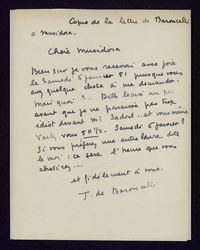 Copie de la lettre de Baroncelli
a musidora.
Chère Musidora
Bien sûr je vous recevrai avec joie
le Samedi 6 janvier 51 puisque vous
avez quelque chose à me demander.
Mais quoi ?... Dites le moi un peu
avant que je ne paraisse pas trop
idiot devant Mr Sadoul... et vous même
Voulez vous 5h ½. Samedi 6 janvier ?
Si vous préférez une autre heure, dites
le moi : ce sera l'heure que vous
choisirez...
et fidèlement à vous.
J. de Baroncelli